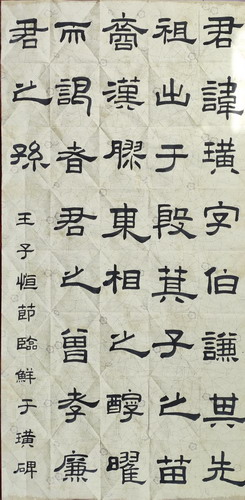 君諱璜字伯謙其先
祖出于殷箕子之苗
裔漢膠東相之醇曜
而謁者君之曾孝廉
君之孫
王子恒節臨鮮于璜碑